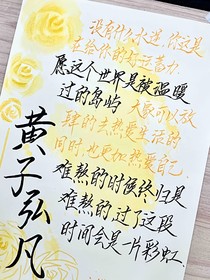 没有什么水逆，你这是
在给你的好运蓄力
愿这个世界是被温暖
过的岛屿 大家可以放
肆的去热爱生活的
同时，也更加热爱自己.
难熬的时候终归是
难熬的，过了这段
时间会是一片彩虹.
黄子弘凡